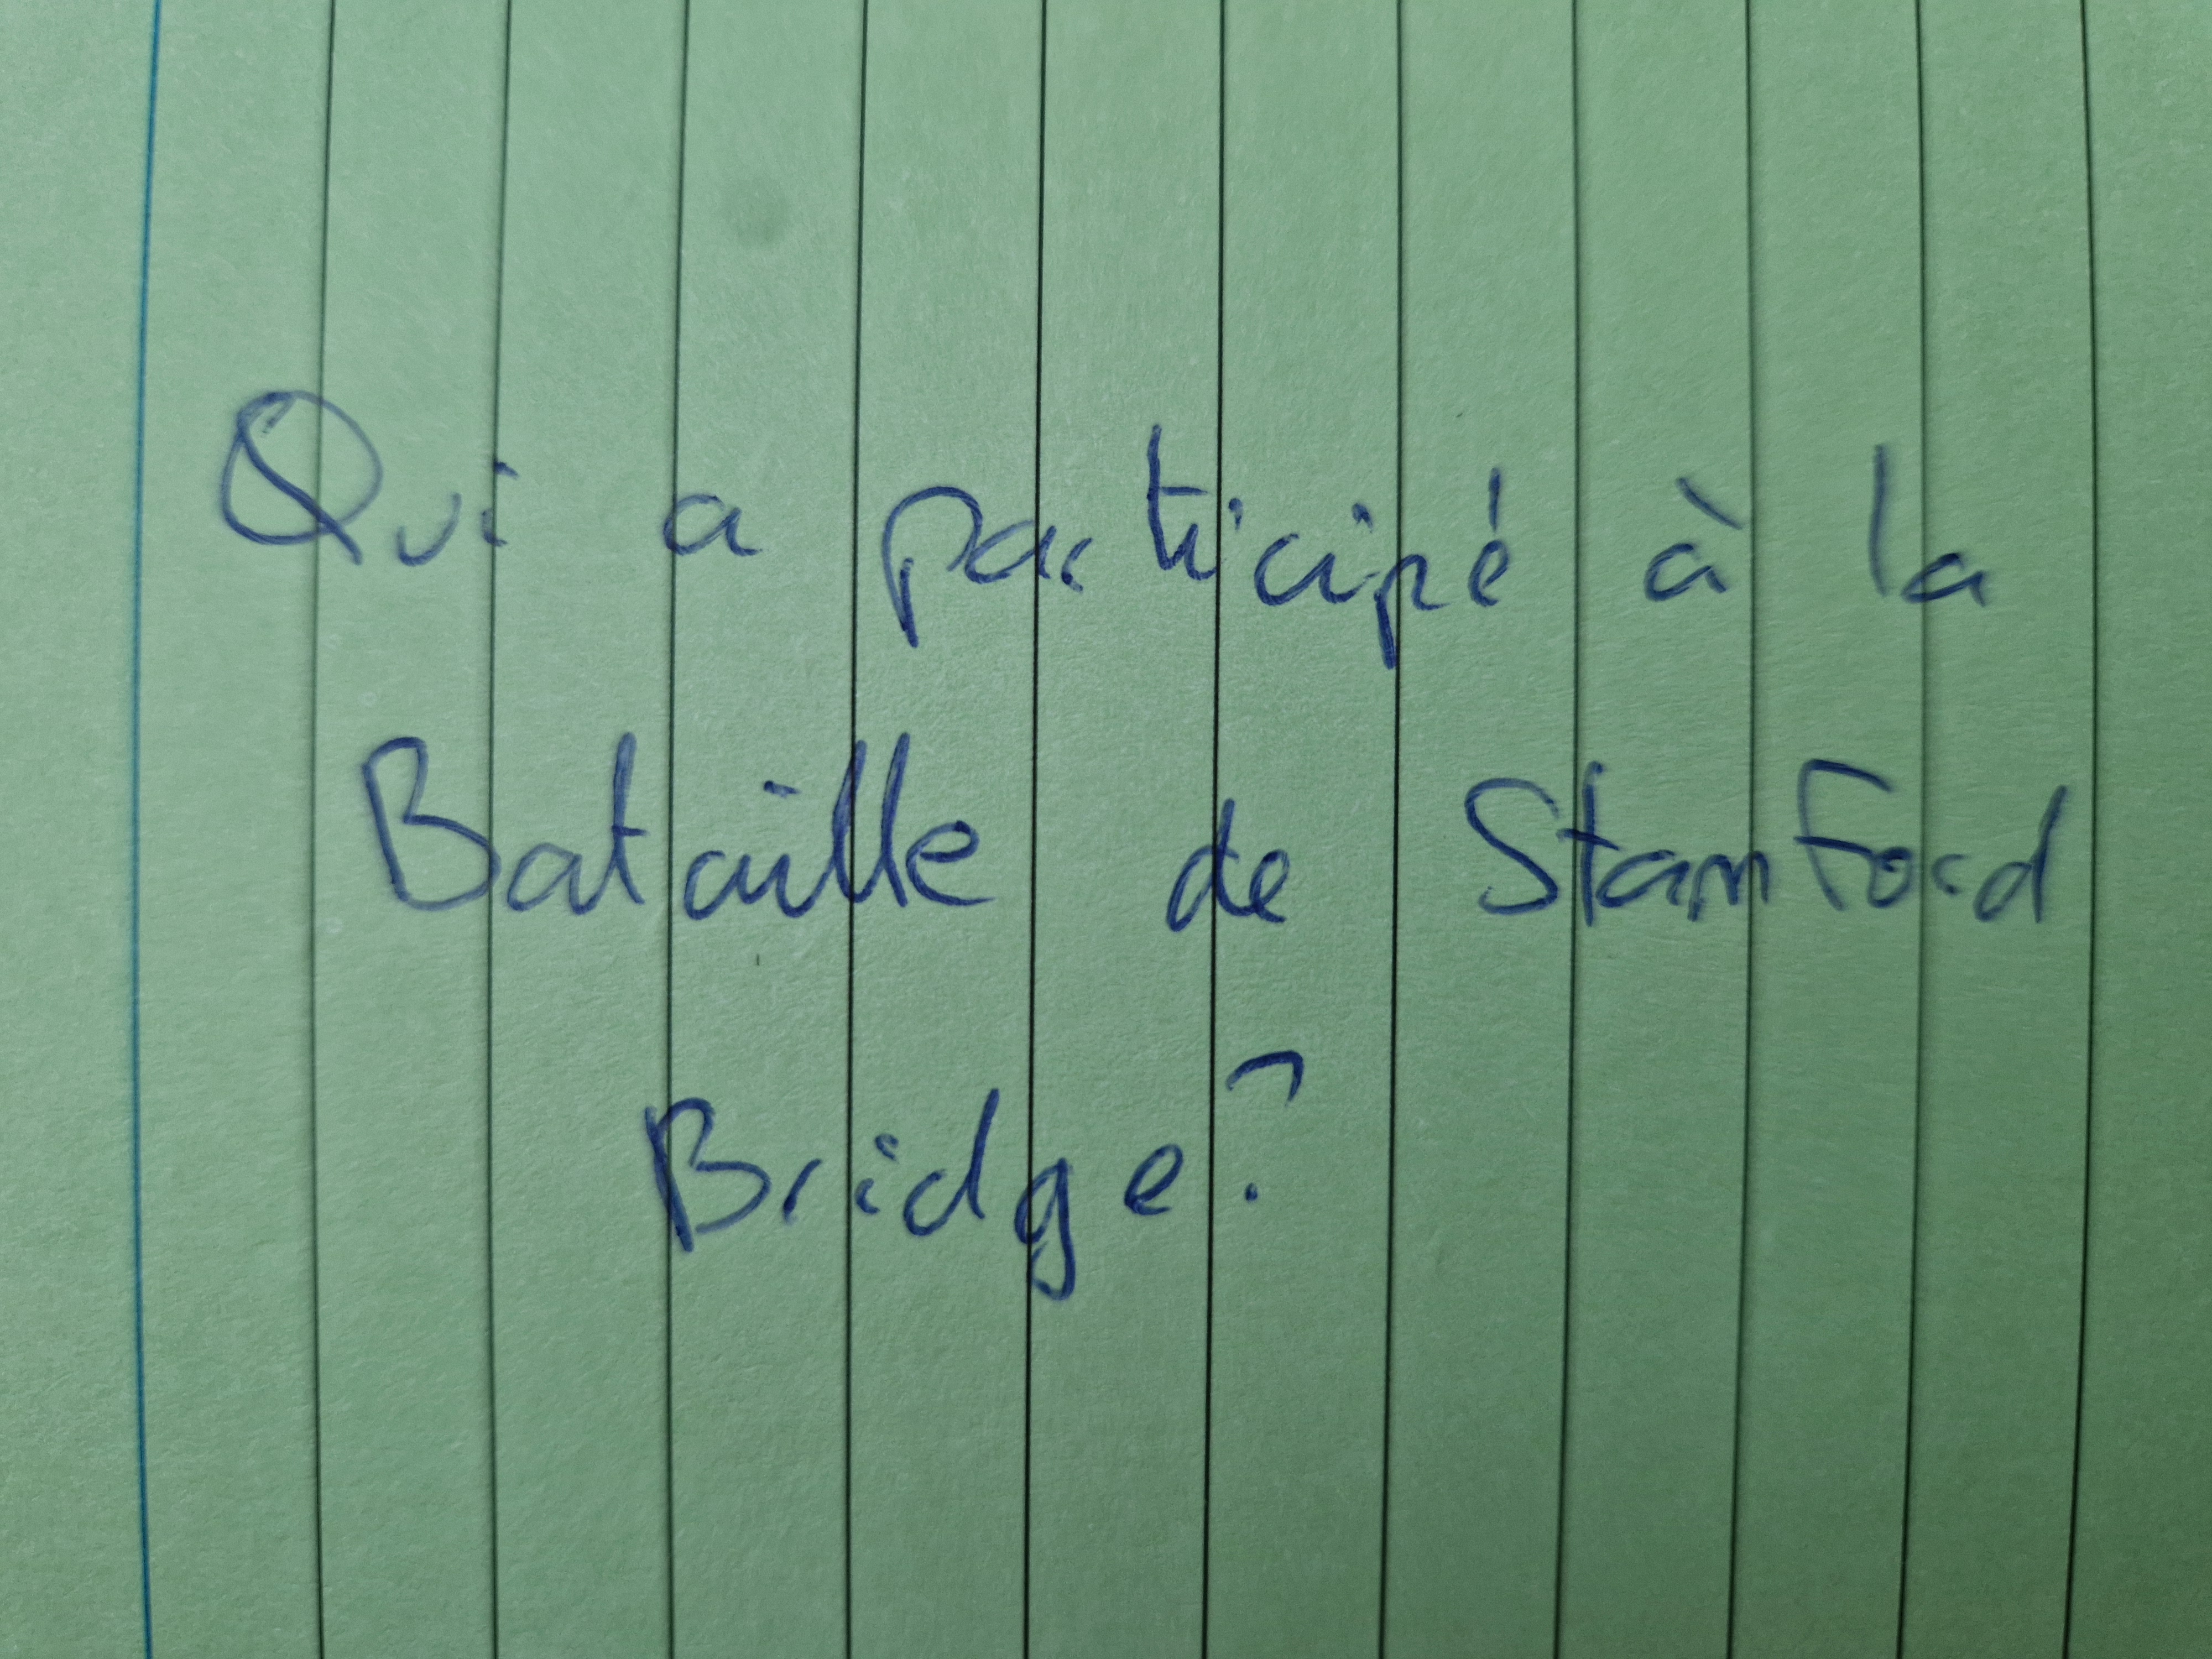 Qui a participé à la
Bataille de Stamford
Bridge?